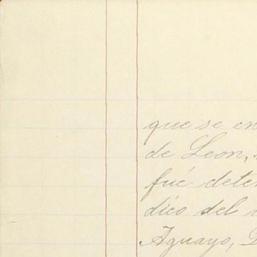 que se en
de Leon,
fué dete
dico del
Aguayo,